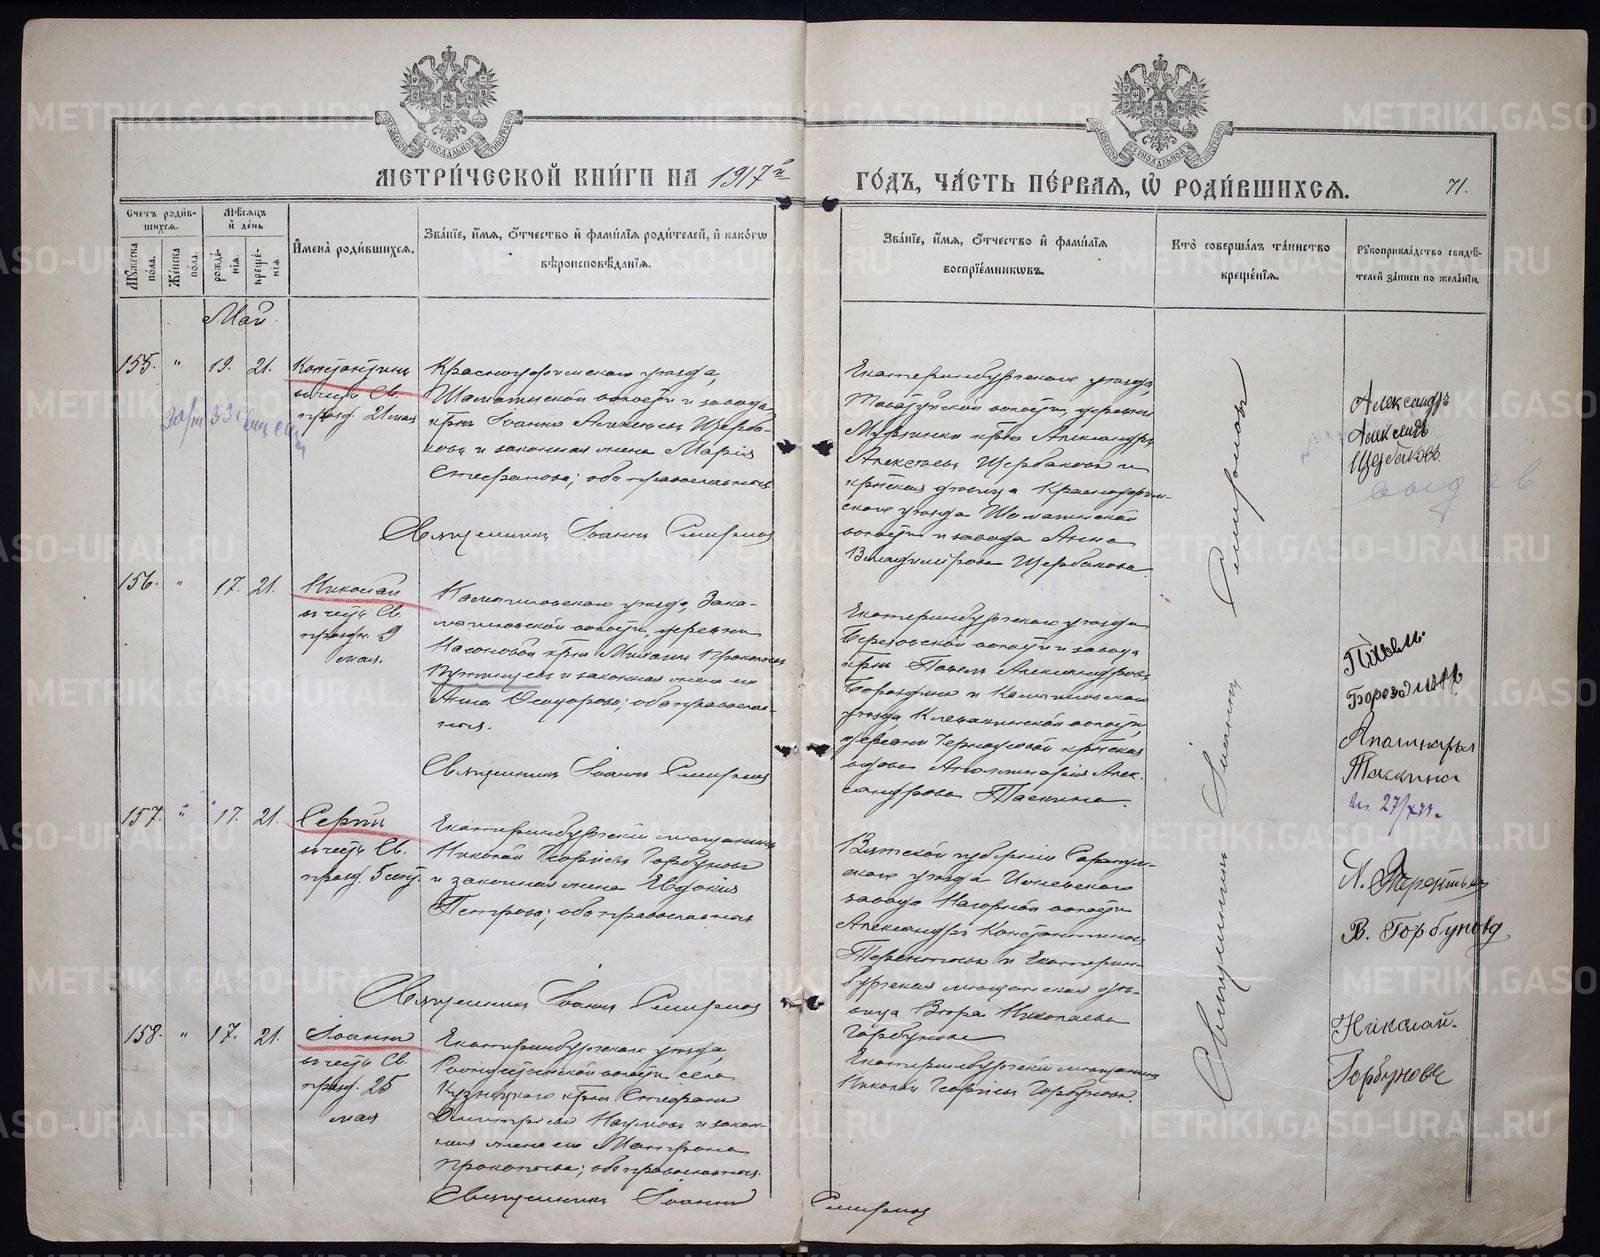 МЕТРИ́ЧЕСКОЙ КНИ́ГИ НА 1917й
ГО́ДЪ, ЧА́СТЬ ПЕ́РВАЯ, Ѽ РОДИ́ВШИХСЯ.
71.
Счетъ роди́в-
шихся.
Мѣ́сяцъ
и҆ де́нь
Мꙋ́жеска по́ла.
Же́нска пола.
рожде́-
нїя.
креще́-
нїя.
И҆мена̀ роди́вшихся.
Зва́нїе, и҆́мя, ѻ҆́тчество и҆ фамѝлїя роди́телей, и҆ како́гѡ
вѣроисповѣ́данїѧ.
Зва́нїе, и҆́мя, ѻ҆́тчество и҆ фами́лїя
воспрїе́мникѡвъ.
Кто̀ соверша́лъ та́инство
креще́нїя.
Рꙋкоприкла́дство свидѣ́-
телей за́писи по жела́нїю.
Май
155. " 19. 21.
Константинъ
въ честь Св.
празд. 21 мая
Красноуфимского уезда,
Шемахинской волости и завода
кр-нъ Іоаннъ Алексѣевъ Щерба-
ковъ и законная жена Марія
Стефанова; оба православные
Священникъ Іоаннъ Смирновъ
Екатеринбургского уезда,
волости, деревни
кр-нъ Александръ
Алексѣевъ Щербаковъ и
крестьян. девица Красноуфим-
ского уезда Шемахинской
волости и завода Анна
Владимірова Щербакова.
Александръ
Алексѣевъ
Щербаковъ
156. " 17. 21.
Николай
въ честь Св.
праздн. 9
мая.
Камышловского уезда, Зака-
мышловской волости, деревни
Насоновой кр-нъ Михаилъ Прокопьевъ
и законная жена его
Анна Ѳеодорова; оба православ-
ные.
Священникъ Іоаннъ Смирновъ
Екатеринбургского уезда
Березовской волости и завода
кр-нъ Павелъ Александровъ
Бороздинъ и Камышловского
уезда Клевакинской волости,
деревни Черноусовой крестьян.
вдова Аполлинарія Алек-
сандрова Таскина.
Павелъ
Бороздинъ
Апалинарья
Таскина
157. " 17. 21.
Сергій
въ честь Св.
празд. 5 сент.
Екатеринбургскій мещанинъ
Николай Георгіевъ Горбуновъ
и законная жена Евдокія
Петрова; оба православные
Священникъ Іоаннъ Смирновъ
Вятской губерніи Сарапуль-
ского уезда Ижевского
завода Нагорной волости
Александръ Константиновъ
Терентьевъ и Екатерин-
бургская мещанская де-
вица Вѣра Николаева
Горбунова
А. Терентьевъ
В. Горбунова
158. " 17. 21.
Іоаннъ
въ честь Св.
празд. 25
мая
Екатеринбургского уезда,
волости села
Кузнецкого кр-нъ Стефанъ
Дмитріевъ Наумовъ и закон-
ная жена его Матрона
Прокопьева; оба православные
Священникъ Іоаннъ Смирновъ
Екатеринбургскій мещанинъ
Николай Георгіевъ Горбуновъ.
Николай.
Горбуновъ
Священникъ Іоаннъ Смирновъ
METRIKI.GASO-URAL.RU